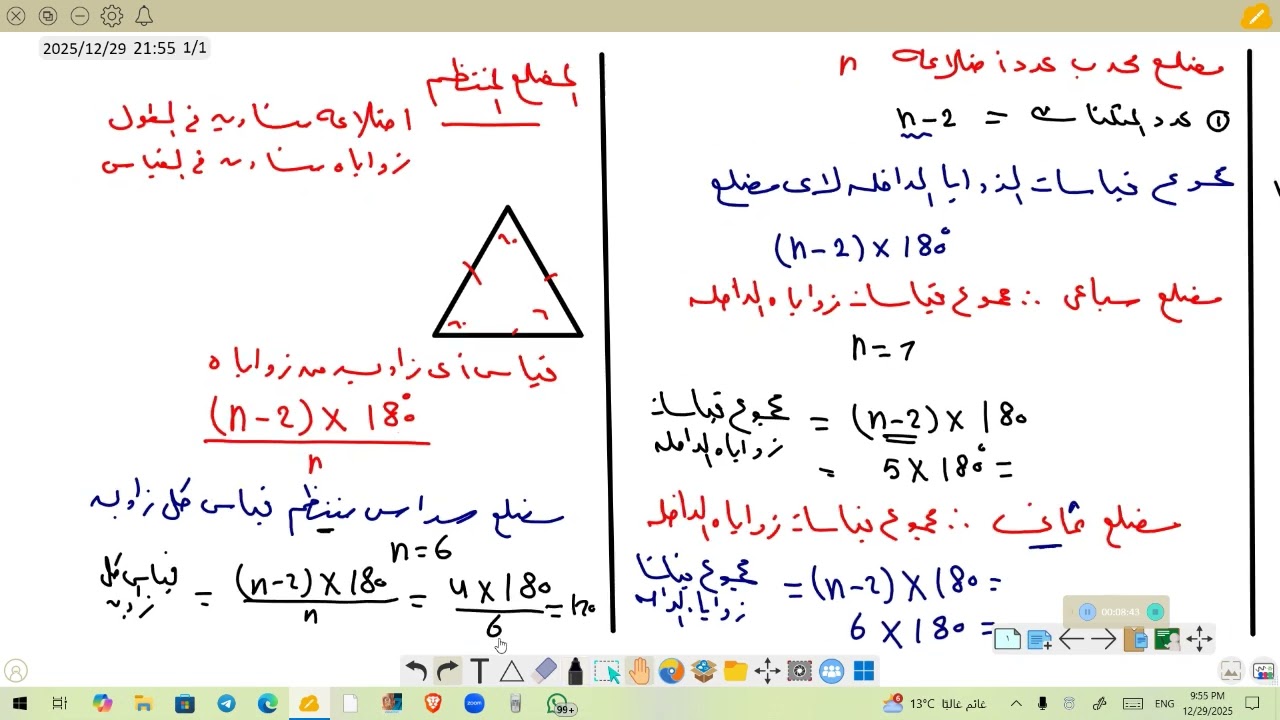 2025/12/29 21:55 1/1
مضلع محدب عدد اضلاعه n
① عدد المثلثات = n-2
مجموع قياسات الزوايا الداخله لاى مضلع
(n-2) × 180°
مضلع سباعى ∴ مجموع قياسات زواياه الداخله
n = 7
مجموع قياسات زواياه الداخله = (n-2) × 180
= 5 × 180° =
مضلع ثمانى ∴ مجموع قياسات زواياه الداخله
مجموع قياسات زواياه الداخله = (n-2) × 180 =
6 × 180 =
المضلع المنتظم
اضلاعه متساويه فى الطول
زواياه متساويه فى القياس
قياس اى زاويه من زواياه
(n-2) × 180°
n
مضلع سداسى منتظم قياس كل زاويه
n = 6
قياس كل زاويه = (n-2) × 180 / n = 4 × 180 / 6 = 120
00:08:43
99+
13°C غائم غالبًا
ENG
9:55 PM
12/29/2025